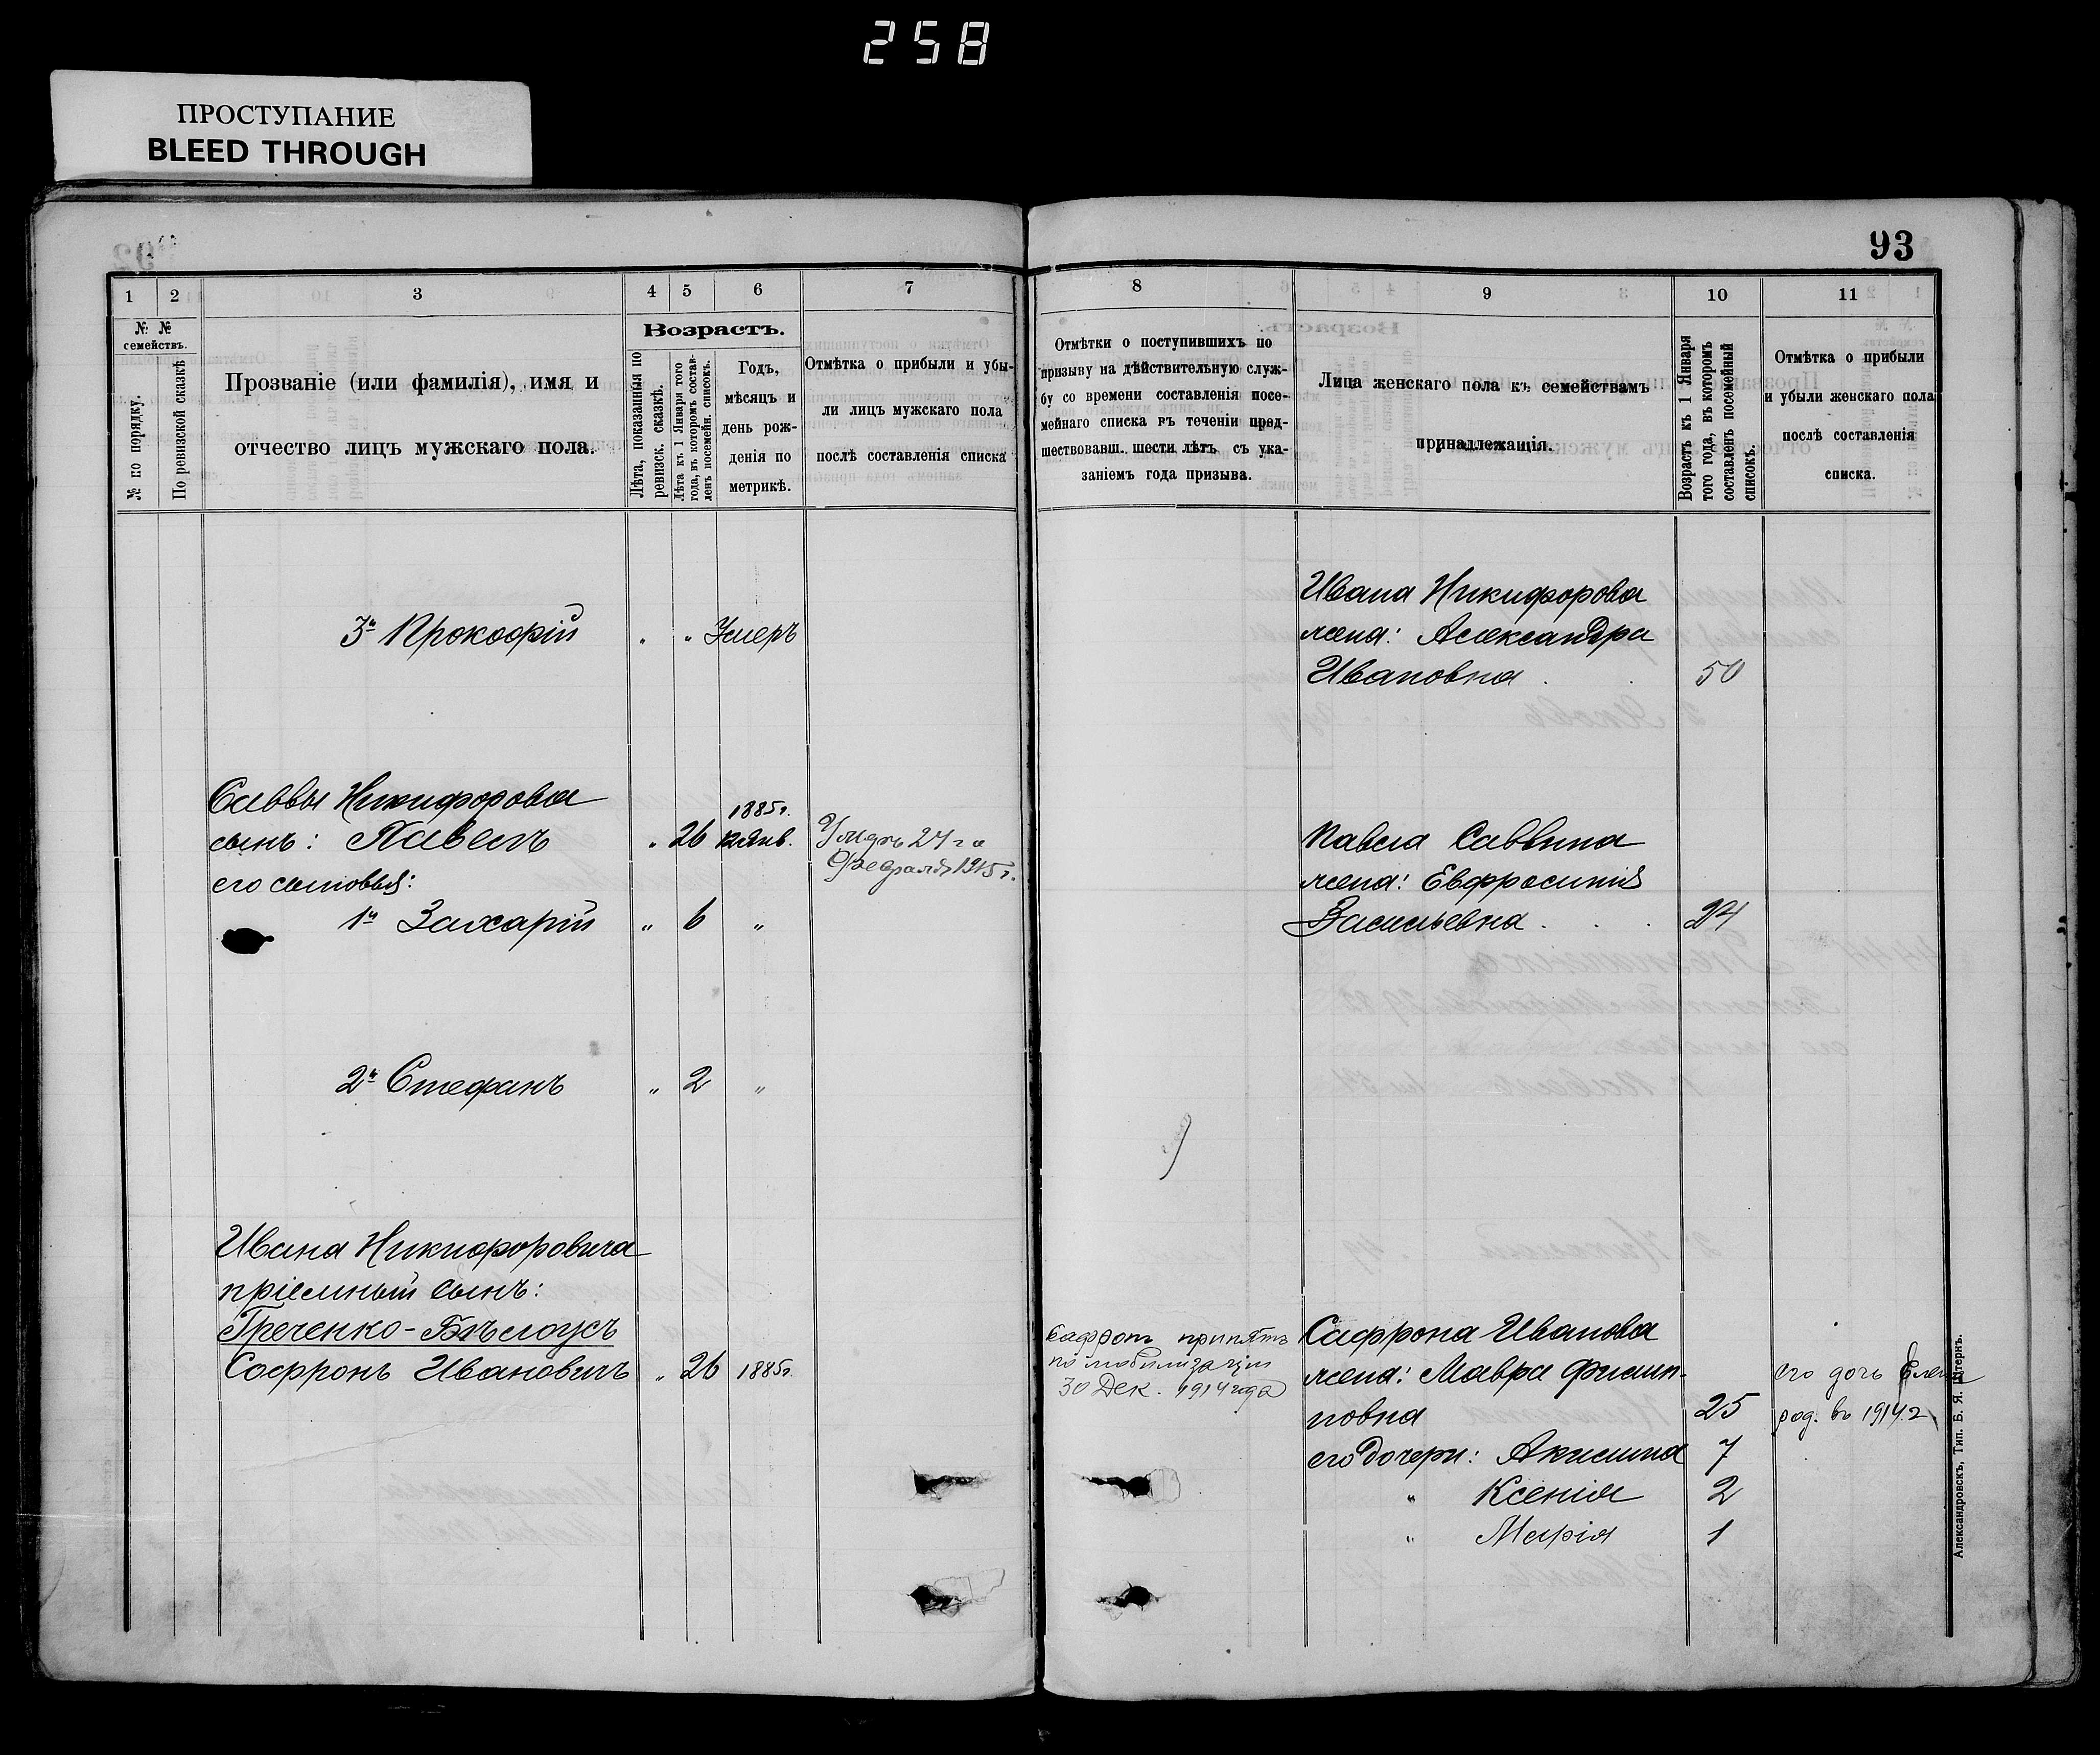 258
ПРОСТУПАНИЕ
BLEED THROUGH
93
1 2 3 4 5 6 7
№ № семействъ.
№ по порядку.
По ревизской сказкѣ
Прозваніе (или фамилія), имя и
отчество лицъ мужскаго пола.
Возрастъ.
Лѣта, показанныя по
ревизск. сказкѣ.
Лѣта къ 1 Января того
года, въ которомъ состав-
ленъ посемейн. списокъ.
Годъ,
мѣсяцъ и
день рож-
денія по
метрикѣ.
Отмѣтка о прибыли и убы-
ли лицъ мужскаго пола
послѣ составленія списка
3й Прокофій " " Умеръ
Саввы Никифорова
сынъ: Павелъ " 26 1885г. 12 Янв.
Умеръ 24го
Февраля 1915г.
его сыновья:
1й Захарій " 6 "
2й Стефанъ " 2 "
Ивана Никифоровича
пріемный сынъ:
Греченко-Бѣлоусъ
Софронъ Ивановичъ " 26 1885г.
8 9 10 11
Отмѣтки о поступившихъ по
призыву на дѣйствительную служ-
бу со времени составленія посе-
мейнаго списка въ теченіи пред-
шествовавш. шести лѣтъ съ ука-
заніемъ года призыва.
Лица женскаго пола къ семействамъ
принадлежащія.
Возрастъ къ 1 Января
того года, въ которомъ
составленъ посемейный
списокъ.
Отмѣтка о прибыли
и убыли женскаго пола
послѣ составленія
списка.
Ивана Никифорова
жена: Александра
Ивановна . . 50
Павла Саввина
жена: Евфросинія
Васильевна . . . 24
Сафронъ принятъ
по мобилизаціи
30 Дек. 1914 года
Сафрона Иванова
жена: Мавра Филип-
повна 25
его дочери: Акилина 7
" Ксенія 2
" Марія 1
его дочь Елена
род. въ 1914 г.
Александровскъ, Тип. Б. Я. Штернъ.